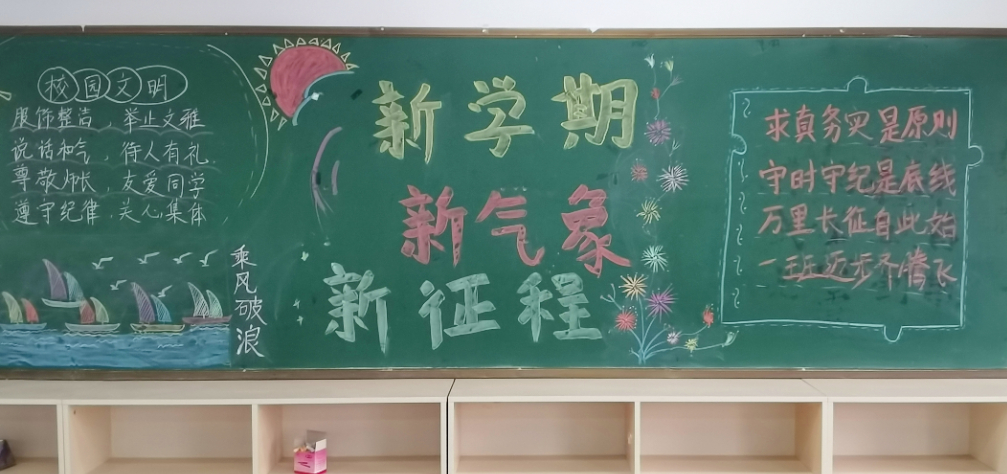 校园文明
服饰整洁，举止文雅
说话和气，待人有礼
尊敬师长，友爱同学
遵守纪律，关心集体
乘风破浪
新学期
新气象
新征程
求真务实是原则
守时守纪是底线
万里长征自此始
一班迈步齐腾飞